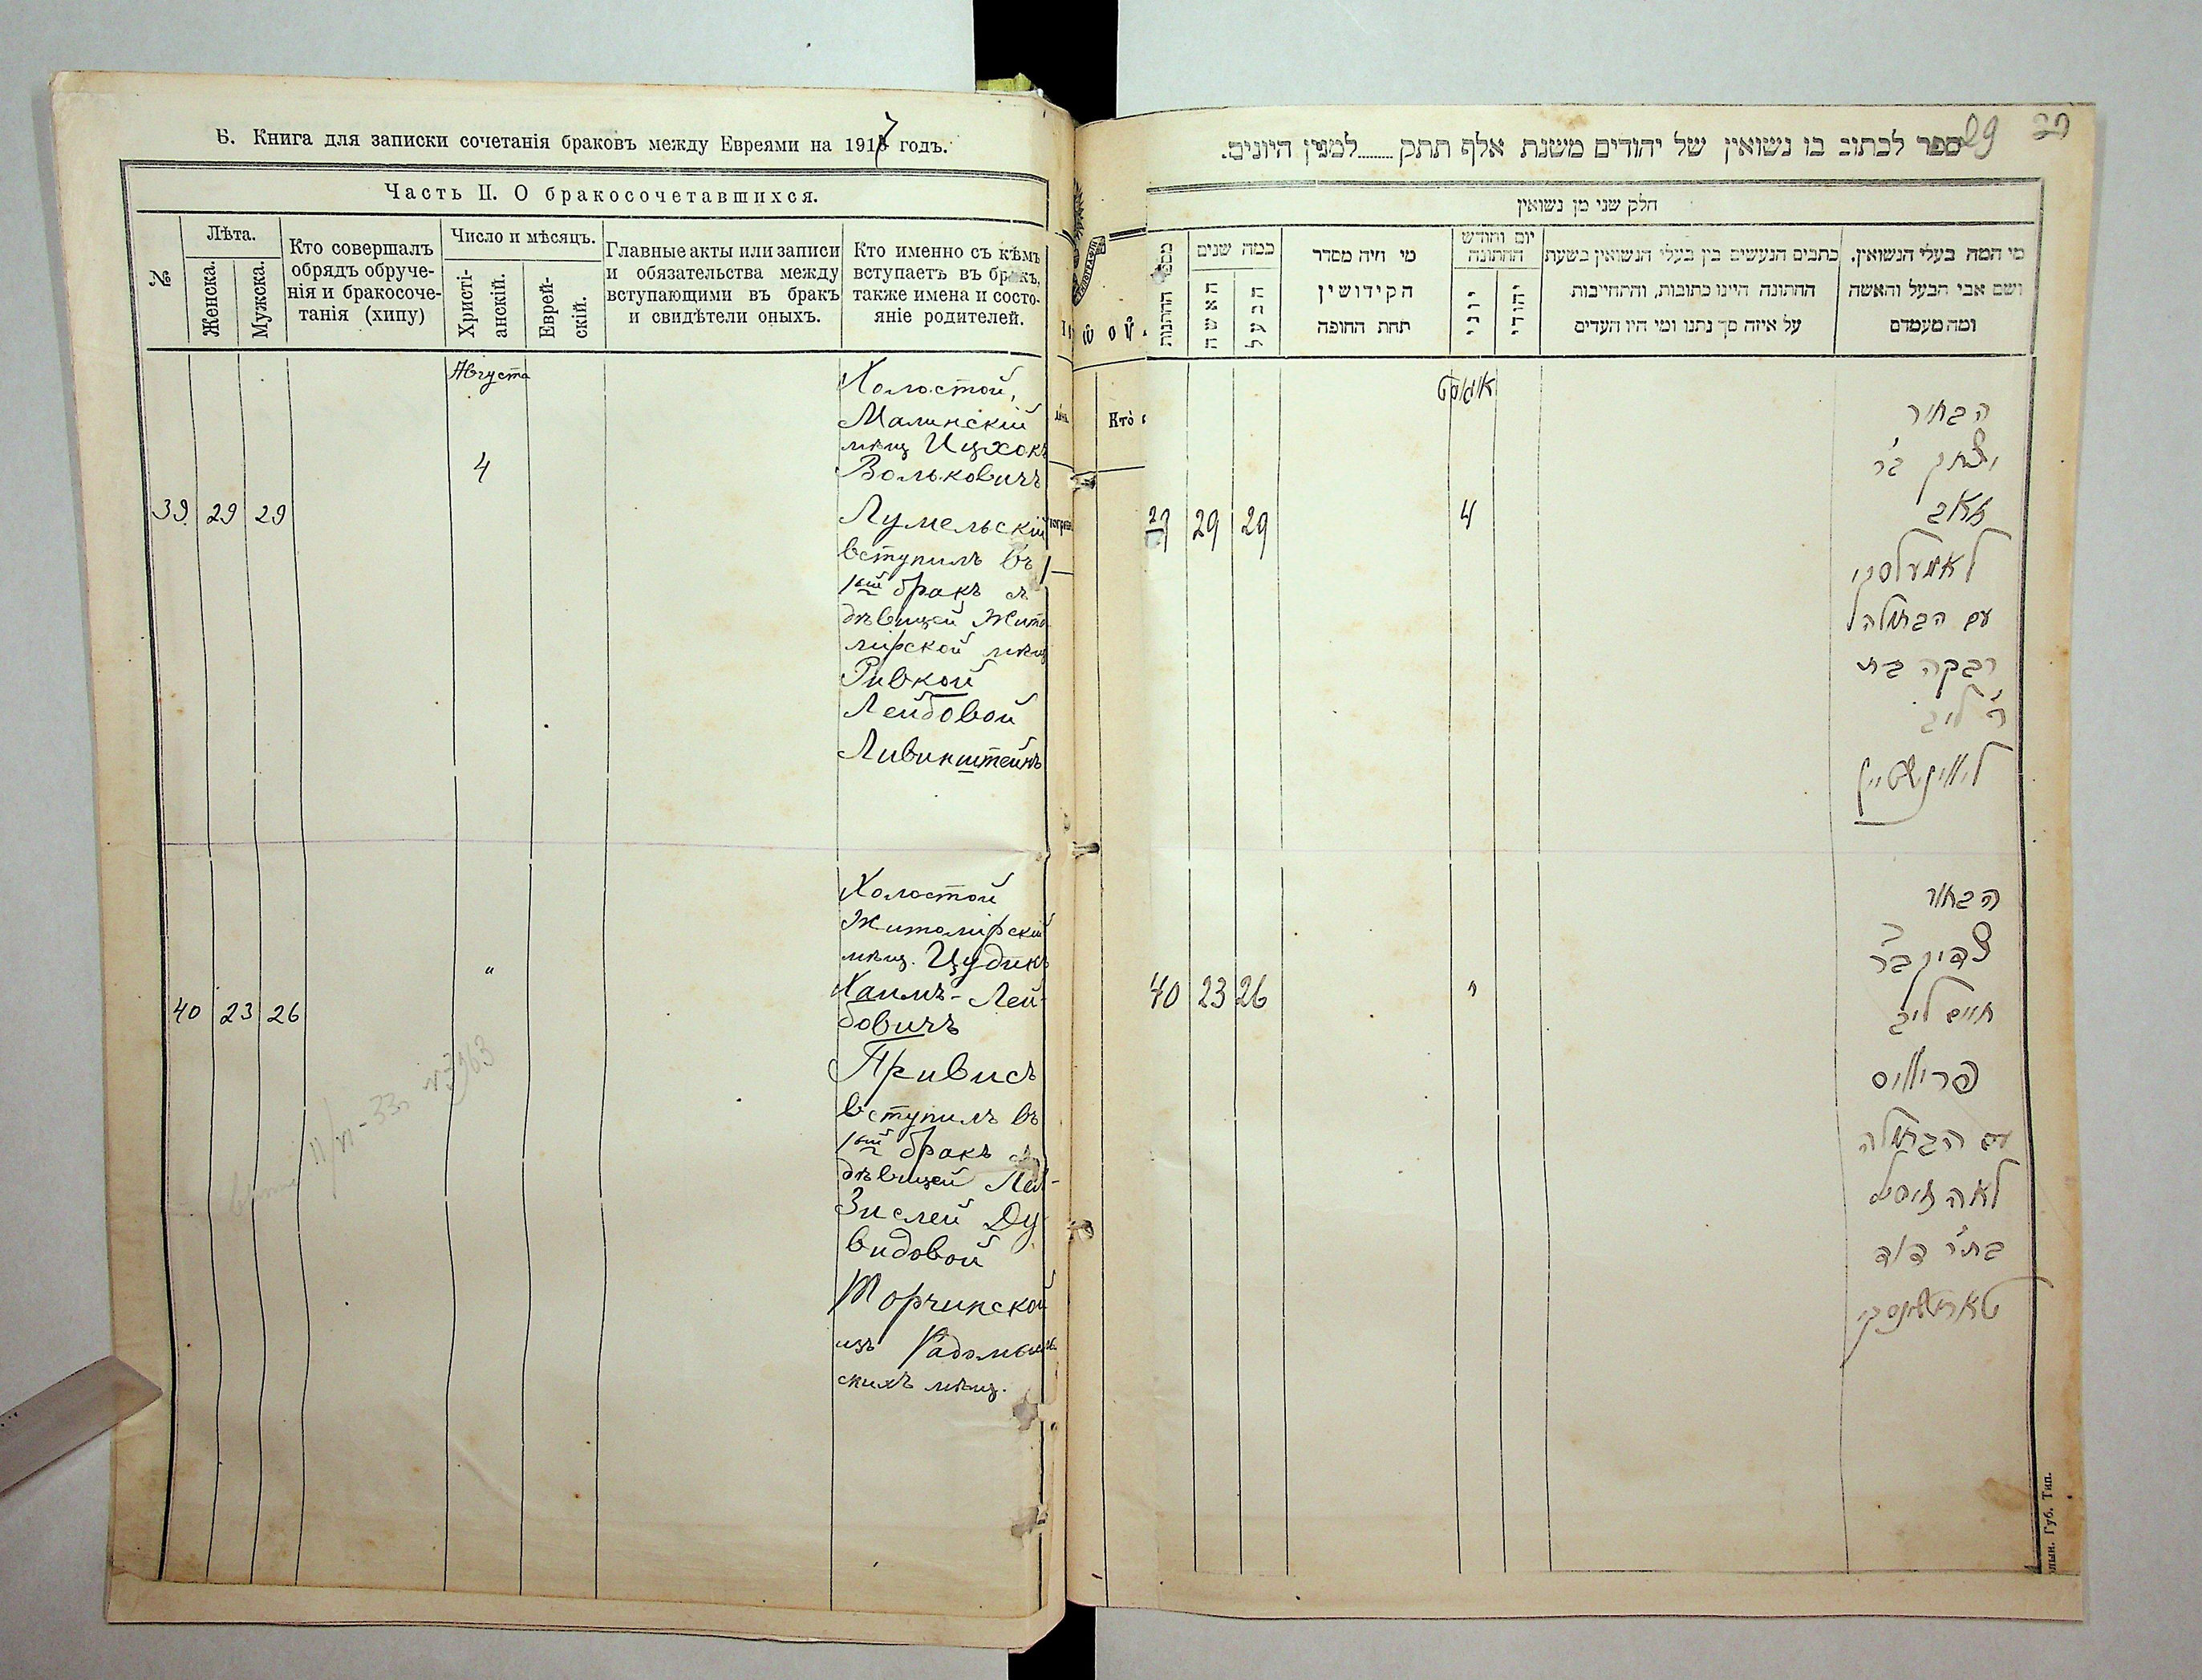 Б. Книга для записки сочетанія браковъ между Евреями на 1917 годъ.
Часть II. О бракосочетавшихся.
№
Лѣта.
Женска.
Мужска.
Кто совершалъ
обрядъ обруче-
нія и бракосоче-
танія (хипу)
Число и мѣсяцъ.
Христі-
анскій.
Еврей-
скій.
Главные акты или записи
и обязательства между
вступающими въ бракъ
и свидѣтели оныхъ.
Кто именно съ кѣмъ
вступаетъ въ бракъ,
также имена и состо-
яніе родителей.
Августа
39 29 29
4
Холостой,
Малинскій
мѣщ Ицхокъ
Вольковичъ
Лумельскій
вступилъ въ
1ый бракъ съ
дѣвицей Жито
мірской мѣщ
Ривкой
Лейбовой
Ливинштейнъ
40 23 26
"
Холостой
Житомірскій
мѣщ. Цудикъ
Хаимъ-Лей-
бовичъ
Привисъ
вступилъ въ
1ый бракъ съ
дѣвицей Лей-
Зислей Ду
видовой
Торчинской
изъ Радомысль
скихъ мѣщ.
11/VI-33г №3963
29
ספר לכתוב בו נשואין של יהודים משנת אלף תתק........למנין היונים.
חלק שני מן נשואין
כמה שנים
האשה
הבעל
מי היה מסדר
הקידושין
תחת החופה
יום וחודש
החתונה
יוני
יהודי
כתבים הנעשים בין בעלי הנשואין בשעת
החתונה היינו כתובות, והתחייבות
על איזה סך נתנו ומי היו העדים
מי המה בעלי הנשואין,
ושם אבי הבעל והאשה
ומה מעמדם
Кто
אוגוסט
29 29
4
הבחור
יצחק ב״ר
זאב
לאמעלסקי
עם הבתולה
רבקה בת
ר׳ ליב
ליווינשטיין
40 23 26
"
הבחור
צדיק ב״ר
חיים ליב
פריוויס
עם הבתולה
לאה זיסיל
בת ר׳ דוד
טארטשינסקי
Губ. Тип.